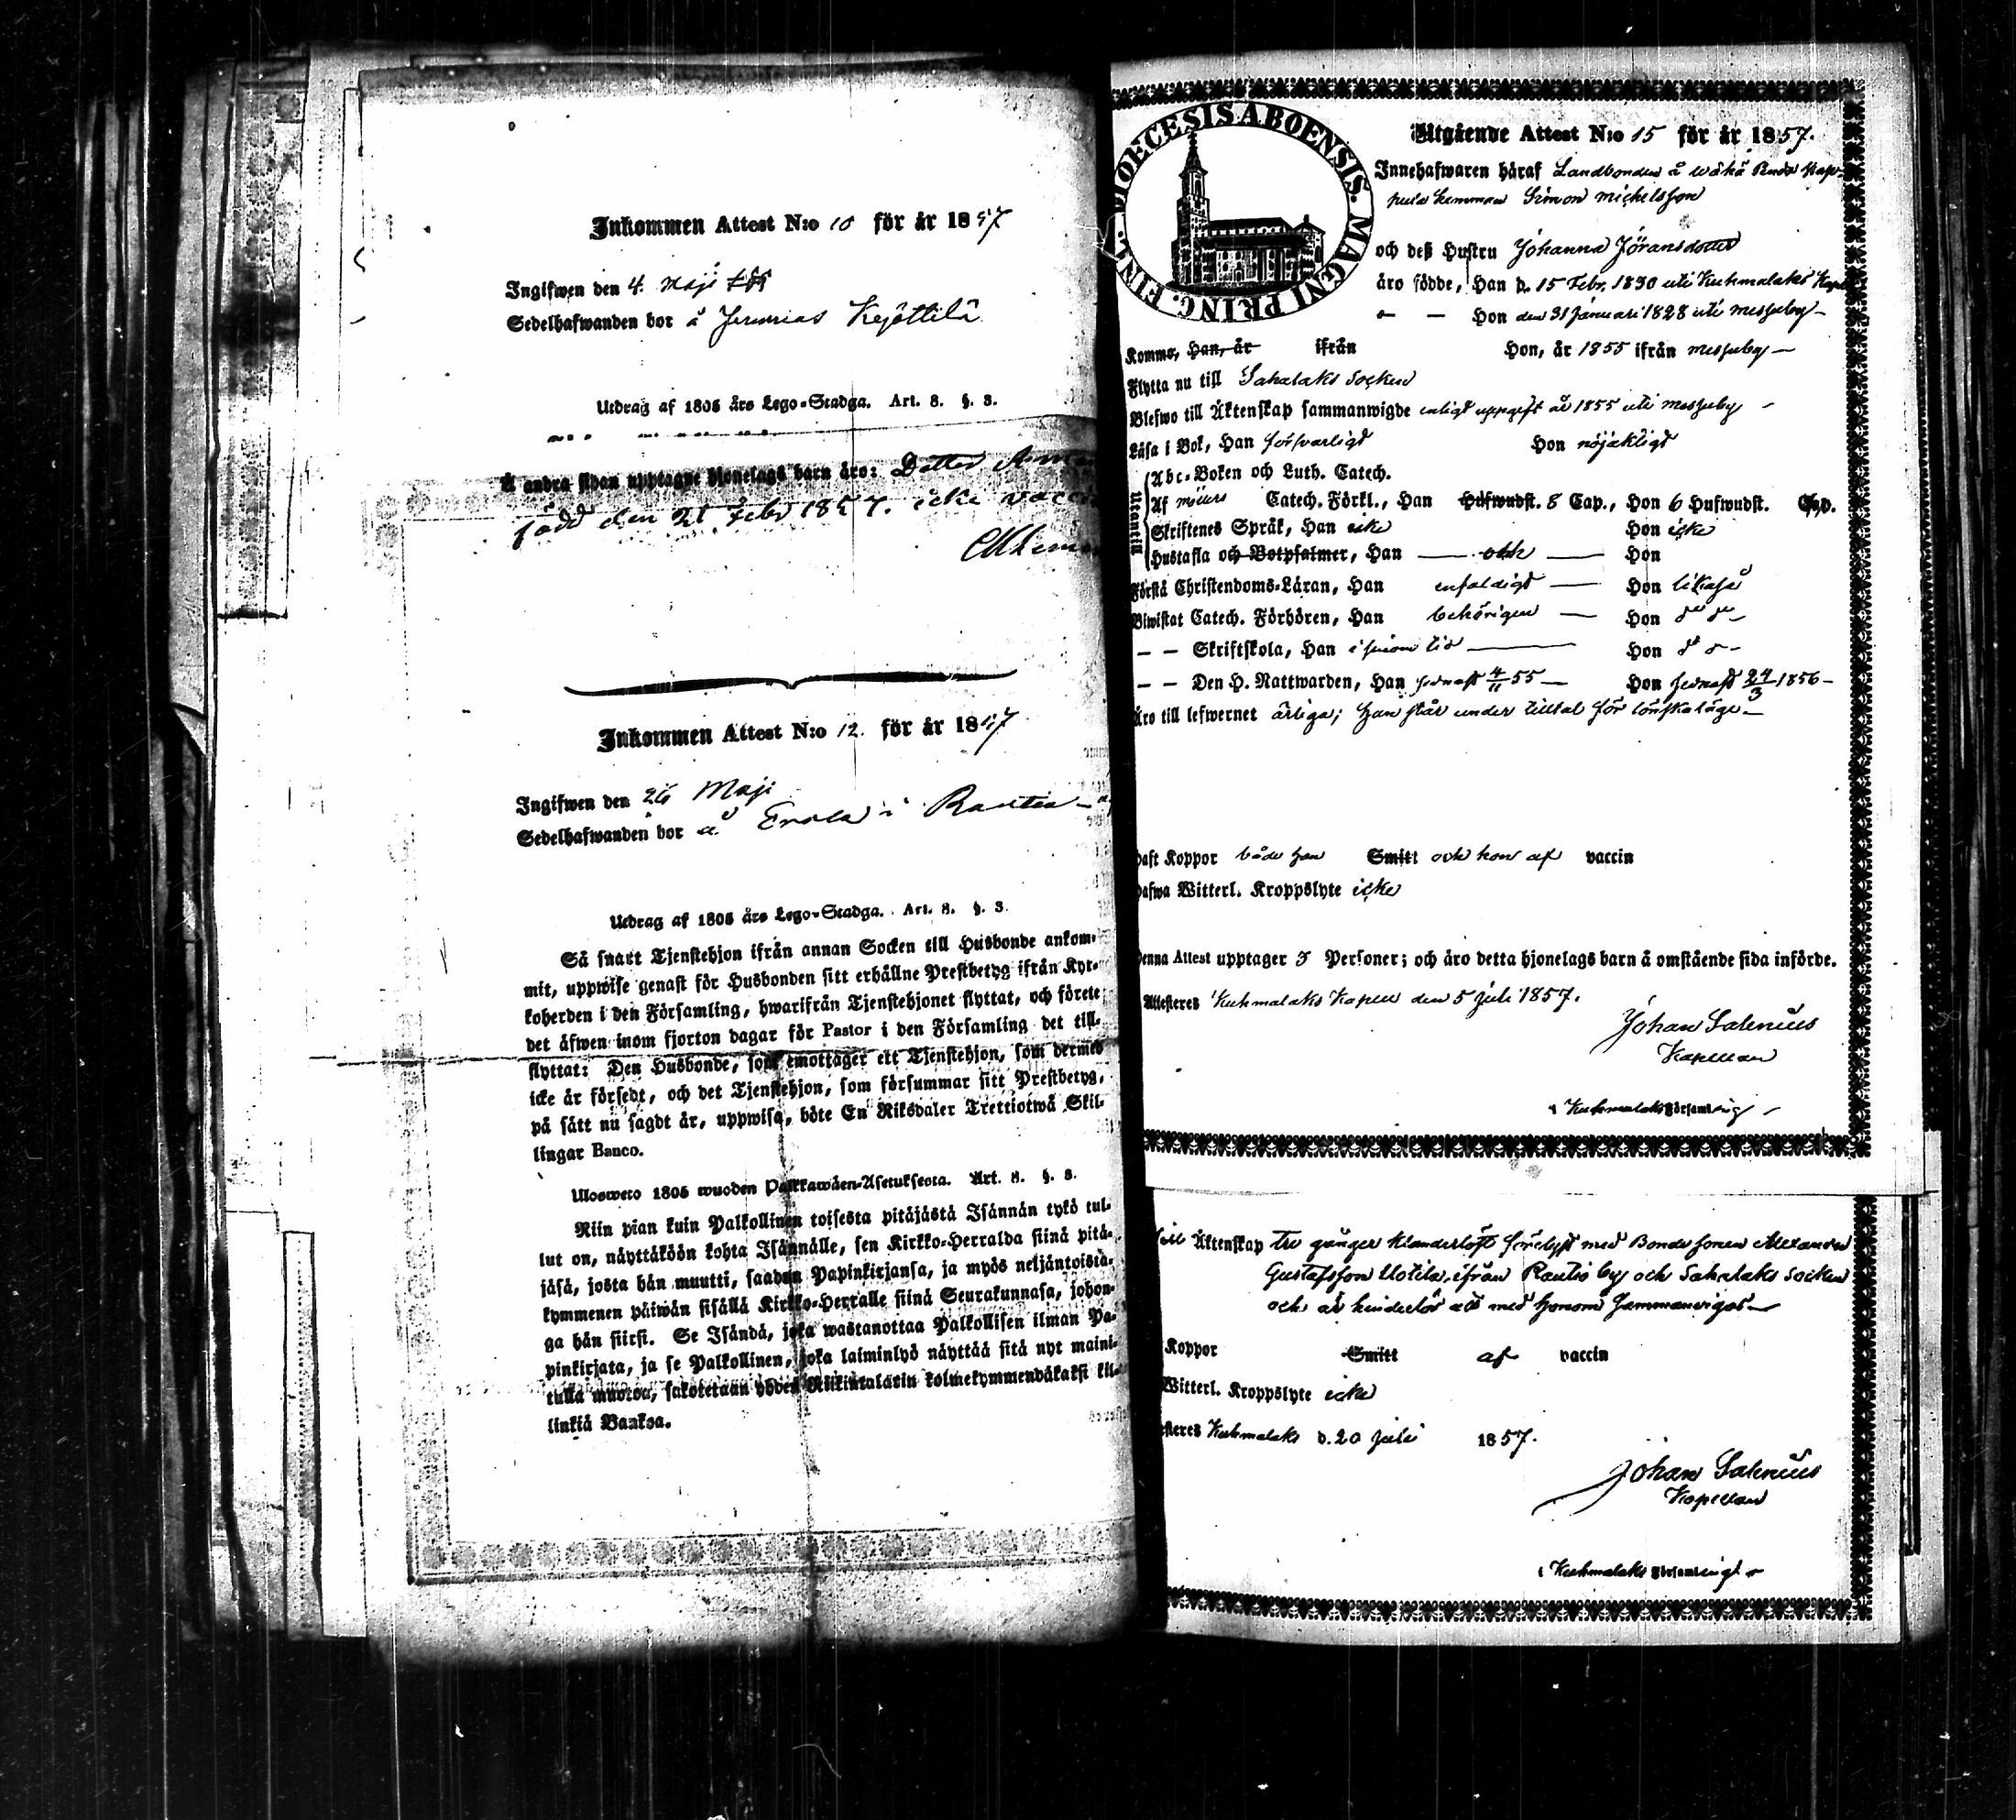 Inkommen Attest N:o 10 för år 1857
Ingifwen den 4 Maji
Sedelhafwanden bor å Jeremias Kejöttilä
Utdrag af 1805 års Lego-Stadga. Art. 8. §. 3.
Å andra sidan upptagne hjonelags barn äro: Dotter
född den 21 Febr 1857. icke
Inkommen Attest N:o 12. för år 1857
Ingifwen den 26 Maji
Sedelhafwanden bor å Erola i Rautio
Utdrag af 1805 års Lego-Stadga. Art. 8. §. 3.
Så snart Tjenstehjon ifrån annan Socken till Husbonde ankom-
mit, uppwise genast för Husbonden sitt erhållne Prestbetyg ifrån Kyr-
koherden i den Församling, hwarifrån Tjenstehjonet flyttat, och förete
det äfwen inom fjorton dagar för Pastor i den Församling det till-
flyttat: Den Husbonde, som emottager ett Tjenstehjon, som dermed
icke är försedt, och det Tjenstehjon, som försummar sitt Prestbetyg,
på sätt nu sagdt är, uppwisa, böte En Riksdaler Trettiotwå Skil-
lingar Banco.
Ulosweto 1805 wuoden Palkkawäen-Asetuksesta. Art. 8. §. 3.
Niin pian kuin Palkollinen toisesta pitäjästä Isännän tykö tul-
lut on, näyttäköön kohta Isännälle, sen Kirkko-Herralda siinä pitä-
jäsä, josta hän muutti, saadun Papinkirjansa, ja myös neljäntoistä-
kymmenen päiwän sisällä Kirkko-Herralle siinä Seurakunnasa, johon-
ga hän siirsi. Se Isändä, joka wastanottaa Palkollisen ilman Pa-
pinkirjata, ja se Palkollinen, joka laiminlyö näyttää sitä nyt maini-
tulla muotoa, sakotetaan yhden Riikintalarin kolmekymmendäkaksi kil-
linkiä Bankoa.
DIOECESIS ABOENSIS. MAGNI PRINC. FINL.
Utgående Attest N:o 15 för år 1857.
Innehafwaren häraf Landbonden å
hemman Simon Mickelsson
och deß Hustru Johanna Jöransdotter
äro födde, Han d. 15 Febr. 1830 uti Kuhmalaks Kapell
— Hon den 31 Januari 1828 uti Messuby —
Komne, Han, år ifrån Hon, år 1855 ifrån Messuby —
Flytta nu till Sahalaks Socken
Blefwo till Äktenskap sammanwigde enligt uppgift år 1855 uti Messuby —
Läsa i Bok, Han försvarligt Hon nöjakligt
Utantill
Abc-Boken och Luth. Catech.
Af Möllers Catech. Förkl., Han Hufwudst. 8 Cap., Hon 6 Hufwudst. Cap.
Skriftenes Språk, Han icke Hon icke
Hustafla och Botpsalmer, Han — Hon
Förstå Christendoms-Läran, Han enfaldigt — Hon likaså
Biwistat Catech. Förhören, Han behörigen — Hon
— — Skriftskola, Han i sinom tid — Hon
— — Den H. Nattwarden, Han senast 4/11 55 — Hon senast 24/3 1856 —
Äro till lefwernet ärliga; han står under tilltal för lönskaläge —
haft Koppor både han Smitt och hon af vaccin
hafwa Witterl. Kroppslyte icke
Denna Attest upptager 3 Personer; och äro detta hjonelags barn å omstående sida införde.
Attesteres Kuhmalaks Kapell den 5 Juli 1857.
Johan Salenius
Kapellan
i Kuhmalaks Församling —
till Äktenskap tre gånger klanderlöst förelyst med Bonde sonen Alexander
Gustafsson Uotila ifrån Rautio by och Sahalaks Socken
och är hinderlös att med honom sammanvigas —
Koppor Smitt af vaccin
Witterl. Kroppslyte icke
Attesteres Kuhmalaks d. 20 Juli 1857.
Johan Salenius
Kapellan
i Kuhmalaks Församling